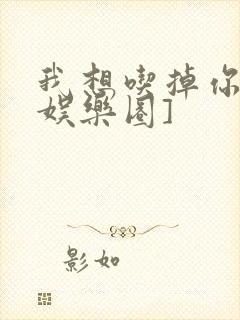 我想喫掉你
娱樂圈]
影如